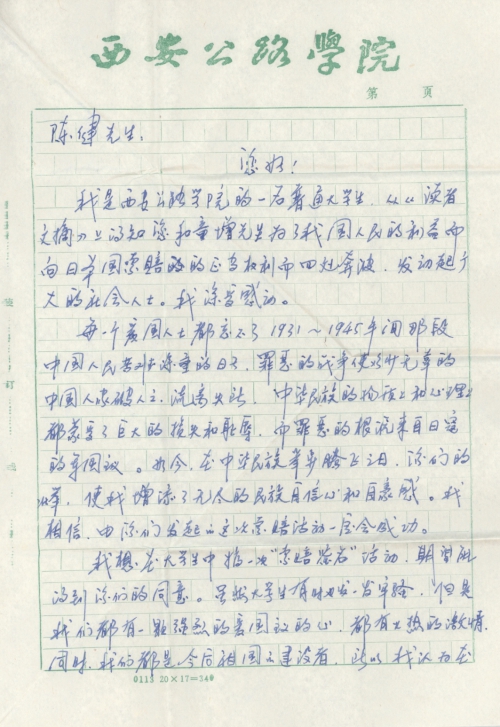 西安公路學院
第 页
陈健先生:
您好!
我是西安公路学院的一名普通大学生,从《读者
文摘》上得知您和童增先生为了我国人民的利益而
向日本国索赔的正当权利而四处奔波,发动起广
大的社会人士。我深受感动。
每一个爱国人士都忘不了1931~1945年间那段
中国人民苦难深重的日子,罪恶的战争使得无辜的
中国人家破人亡,流离失所,中华民族的物质上和心理上
都蒙受了巨大的损失和耻辱,而罪恶的根源来自日寇
的军国主义。如今,在中华民族举步腾飞之日,您们的
举,使我增添了无尽的民族自信心和自豪感。我
相信,由您们发起的这次索赔活动一定会成功。
我想在大学生中搞一次“索赔签名”活动,期望能
得到您们的同意。虽然大学生有时也发一发牢骚,但是
我们都有一颗强烈的爱国的心,都有火热的激情,
同时,我们都是今后祖国之建设者,所以我认为在
0115 20×17=340
订